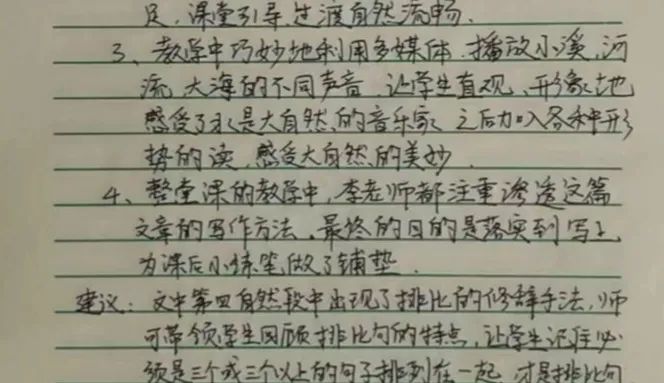 足，课堂引导过渡自然流畅．
3、教学中巧妙地利用多媒体．播放小溪，河
流，大海的不同声音，让学生直观、形象地
感受了水是大自然的音乐家．之后加入各种形
势的读，感受大自然的美妙．
4、整堂课的教学中，李老师都注重渗透这篇
文章的写作方法，最终的目的是落实到写上，
为课后小练笔做了铺垫．
建议：文中第四自然段中出现了排比的修辞手法，师
可带领学生回顾排比句的特点，让学生记住必
须是三个或三个以上的句子排列在一起，才是排比句